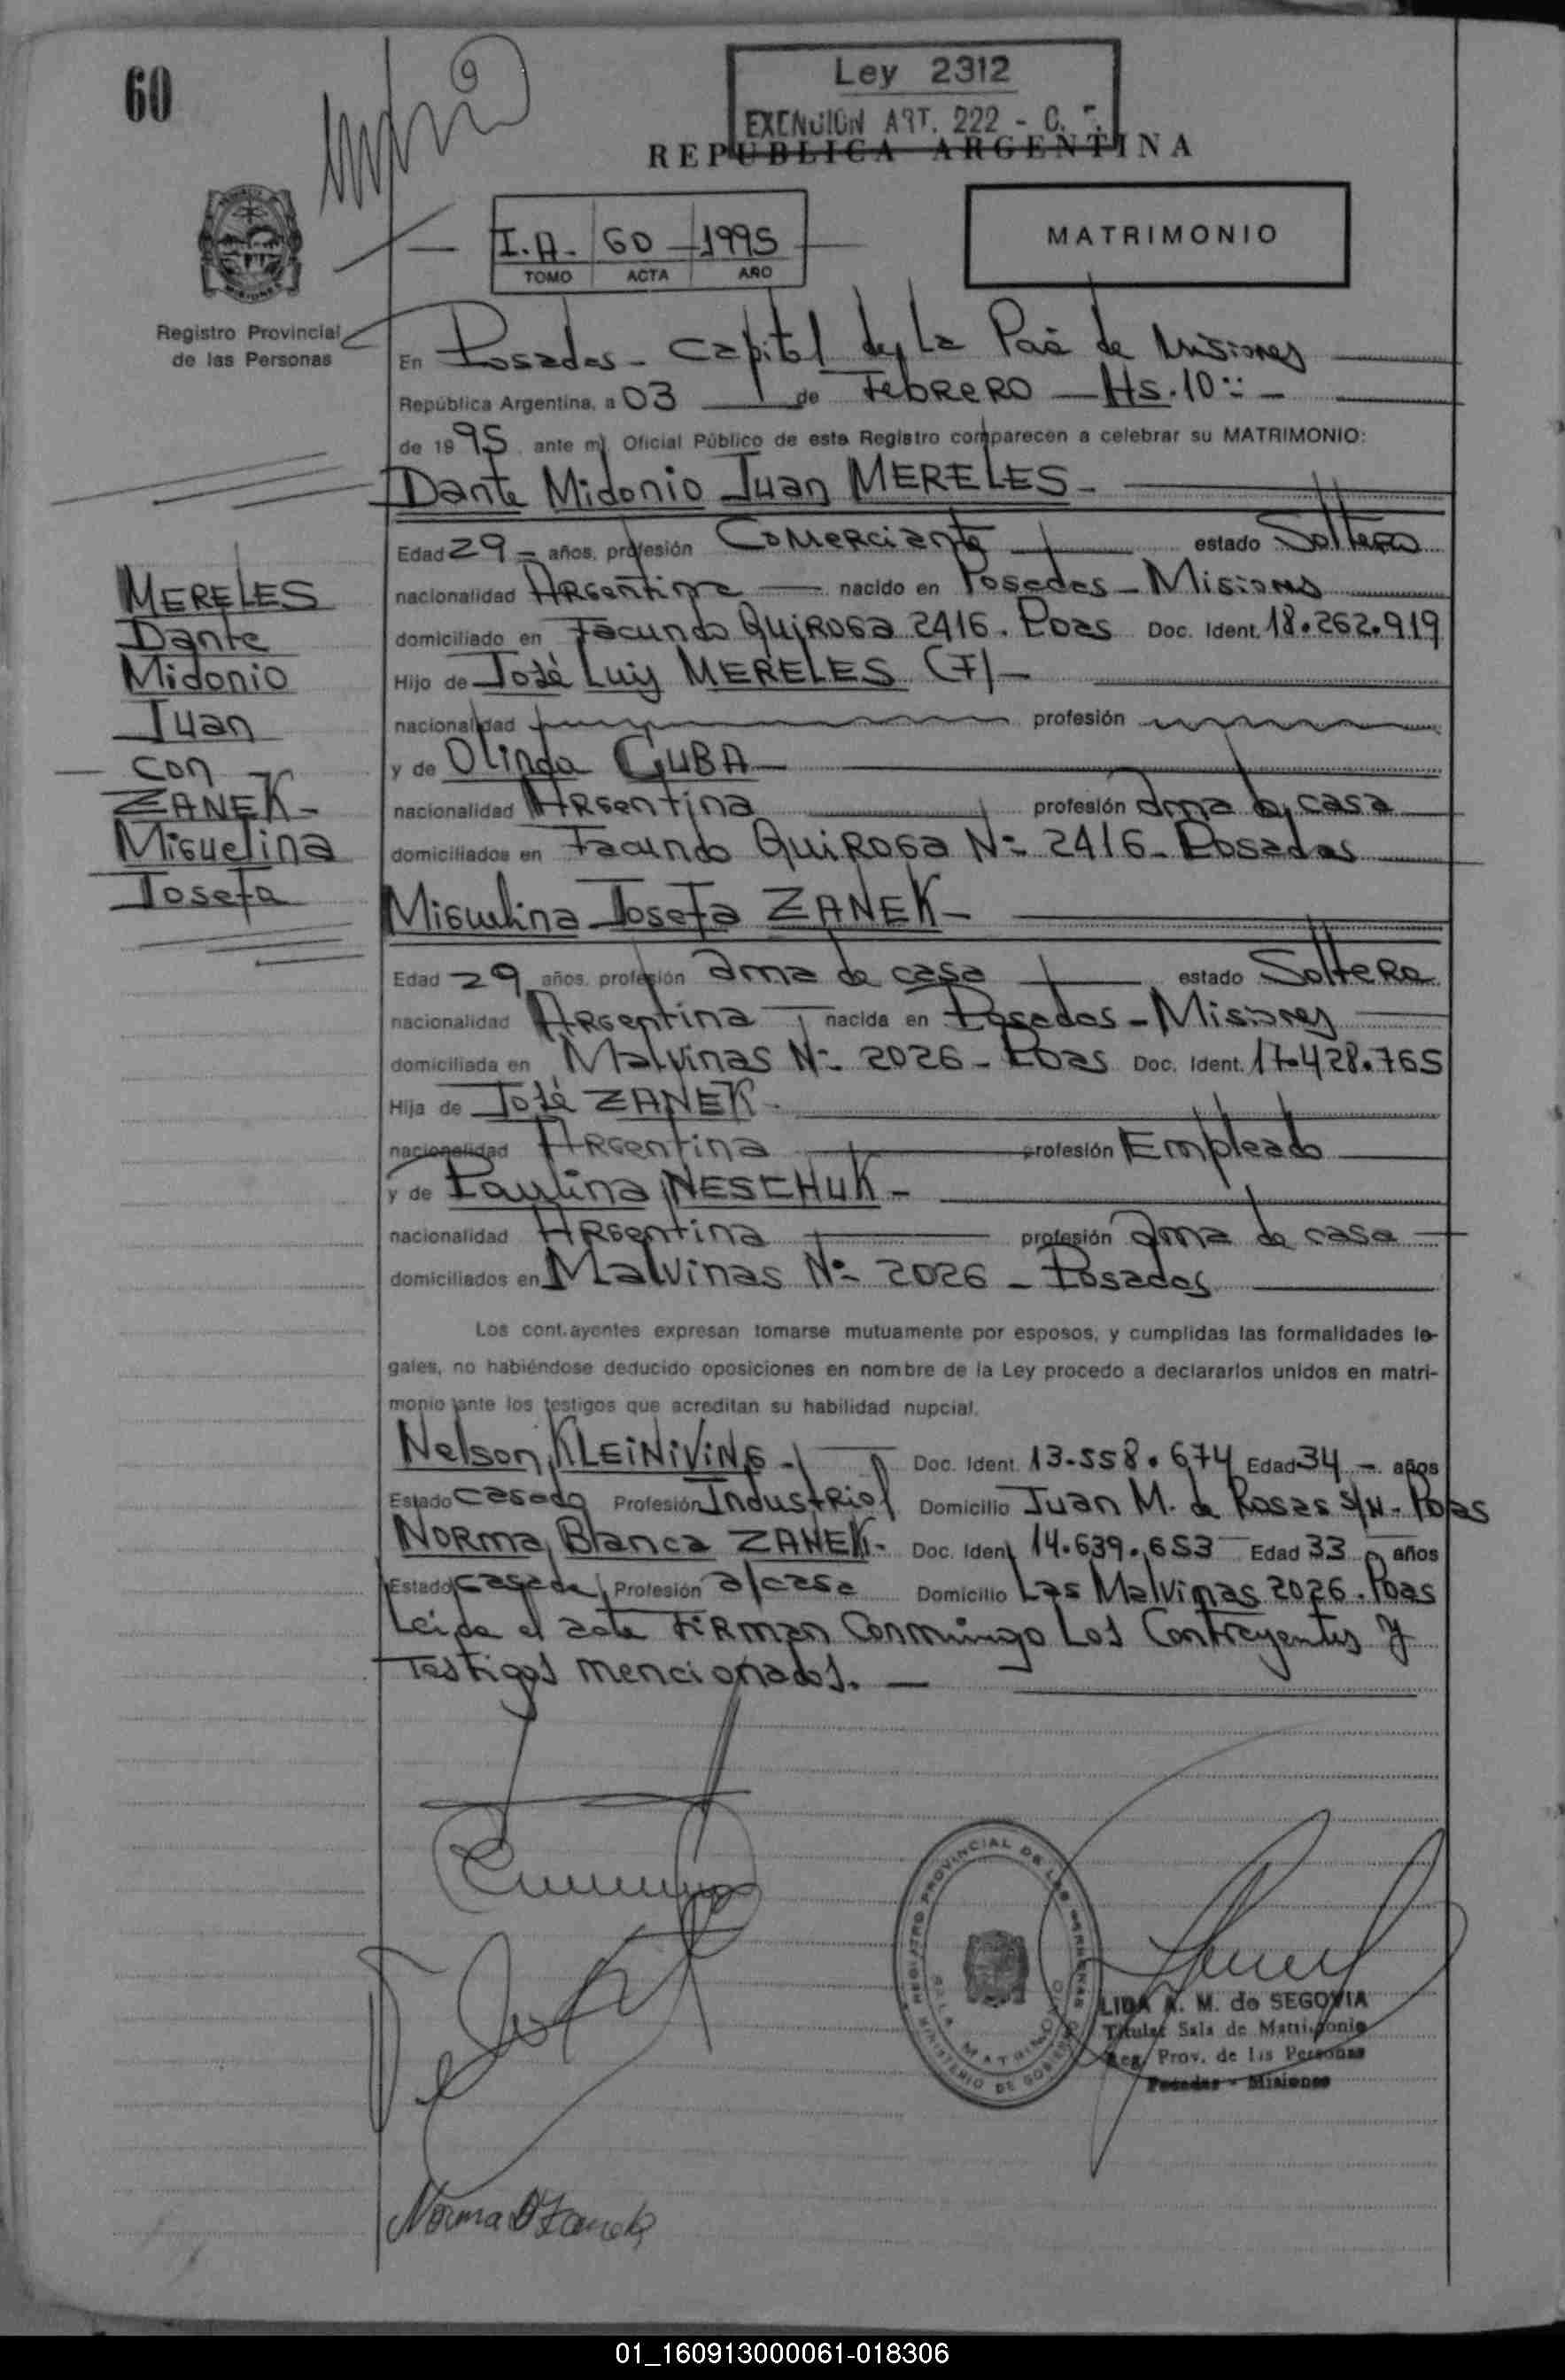 60
Ley 2312
EXENCION ART. 222 - C.
REPUBLICA ARGENTINA
I.A. 60 1995
TOMO ACTA AÑO
MATRIMONIO
Registro Provincial
de las Personas
En Posadas - Capital de La Pcia de Misiones
República Argentina, a 03 de Febrero Hs. 10
de 1995 ante mí, Oficial Público de este Registro comparecen a celebrar su MATRIMONIO:
Dante Midonio Juan MERELES -
Edad 29 - años, profesión Comerciante estado Soltero
nacionalidad Argentina nacido en Posadas - Misiones
domiciliado en Facundo Quiroga 2416. Pdas Doc. Ident. 18.262.919
Hijo de José Luis MERELES (F) -
nacionalidad profesión
y de Olinda CUBA
nacionalidad Argentina profesión ama de casa
domiciliados en Facundo Quiroga Nº 2416 - Posadas
MERELES
Dante
Midonio
Juan
con
ZANEK -
Miguelina
Josefa
Miguelina Josefa ZANEK -
Edad 29 años, profesión ama de casa estado Soltera
nacionalidad Argentina nacida en Posadas - Misiones
domiciliada en Malvinas Nº 2026 - Pdas Doc. Ident. 17.428.765
Hija de José ZANEK -
nacionalidad Argentina profesión Empleado
y de Paulina NESCHUK -
nacionalidad Argentina profesión ama de casa
domiciliados en Malvinas Nº 2026 - Posadas
Los cont.ayentes expresan tomarse mutuamente por esposos, y cumplidas las formalidades le-
gales, no habiéndose deducido oposiciones en nombre de la Ley procedo a declararlos unidos en matri-
monio ante los testigos que acreditan su habilidad nupcial.
Nelson KLEINIVING - Doc. Ident. 13.558.674 Edad 34 - años
Estado Casado Profesión Industrial Domicilio Juan M. de Rosas S/N - Pdas
Norma Blanca ZANEK - Doc. Ident. 14.639.653 Edad 33 años
Estado Casada Profesión a/casa Domicilio Las Malvinas 2026. Pdas
Leida el acta Firman Conmigo Los Contrayentes y
Testigos mencionados. -
REGISTRO PROVINCIAL DE LAS PERSONAS
SALA MATRIMONIO
MINISTERIO DE GOBIERNO
LIDA A. M. de SEGOVIA
Titular Sala de Matrimonio
Reg. Prov. de las Personas
Posadas - Misiones
Norma B Zanek
01_160913000061-018306